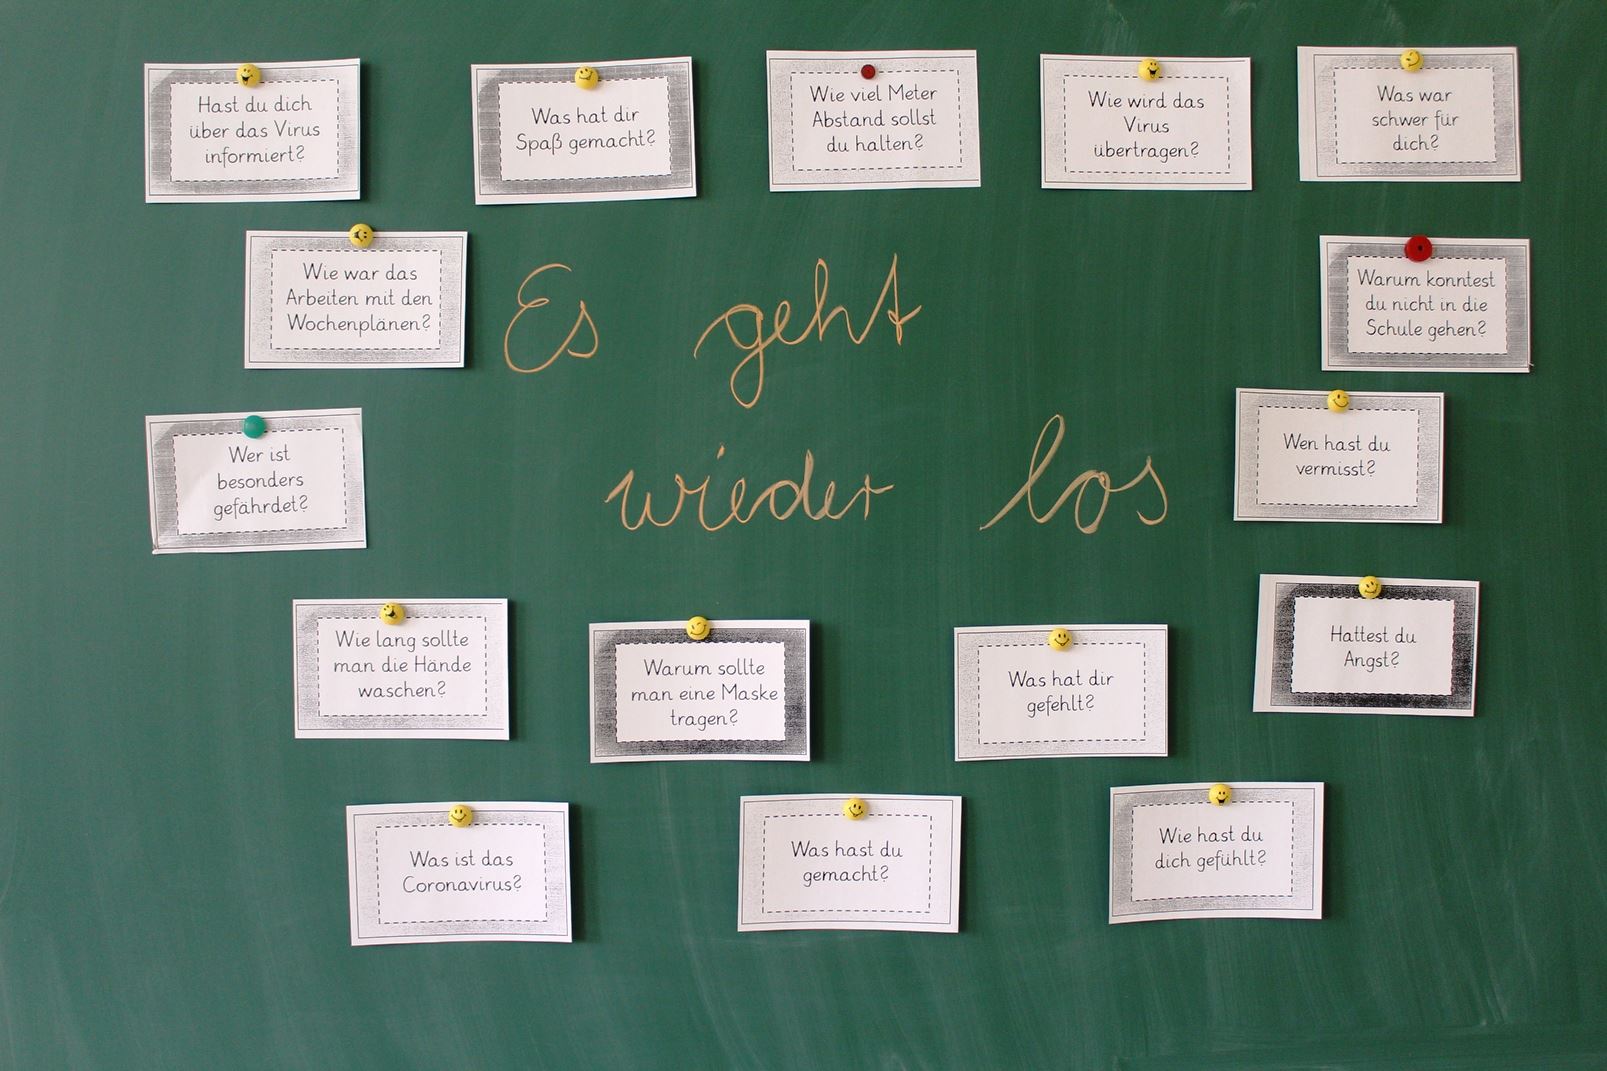 Hast du dich
über das Virus
informiert?
Was hat dir
Spaß gemacht?
Wie viel Meter
Abstand sollst
du halten?
Wie wird das
Virus
übertragen?
Was war
schwer für
dich?
Wie war das
Arbeiten mit den
Wochenplänen?
Es geht
wieder los
Warum konntest
du nicht in die
Schule gehen?
Wer ist
besonders
gefährdet?
Wen hast du
vermisst?
Wie lang sollte
man die Hände
waschen?
Warum sollte
man eine Maske
tragen?
Was hat dir
gefehlt?
Hattest du
Angst?
Was ist das
Coronavirus?
Was hast du
gemacht?
Wie hast du
dich gefühlt?